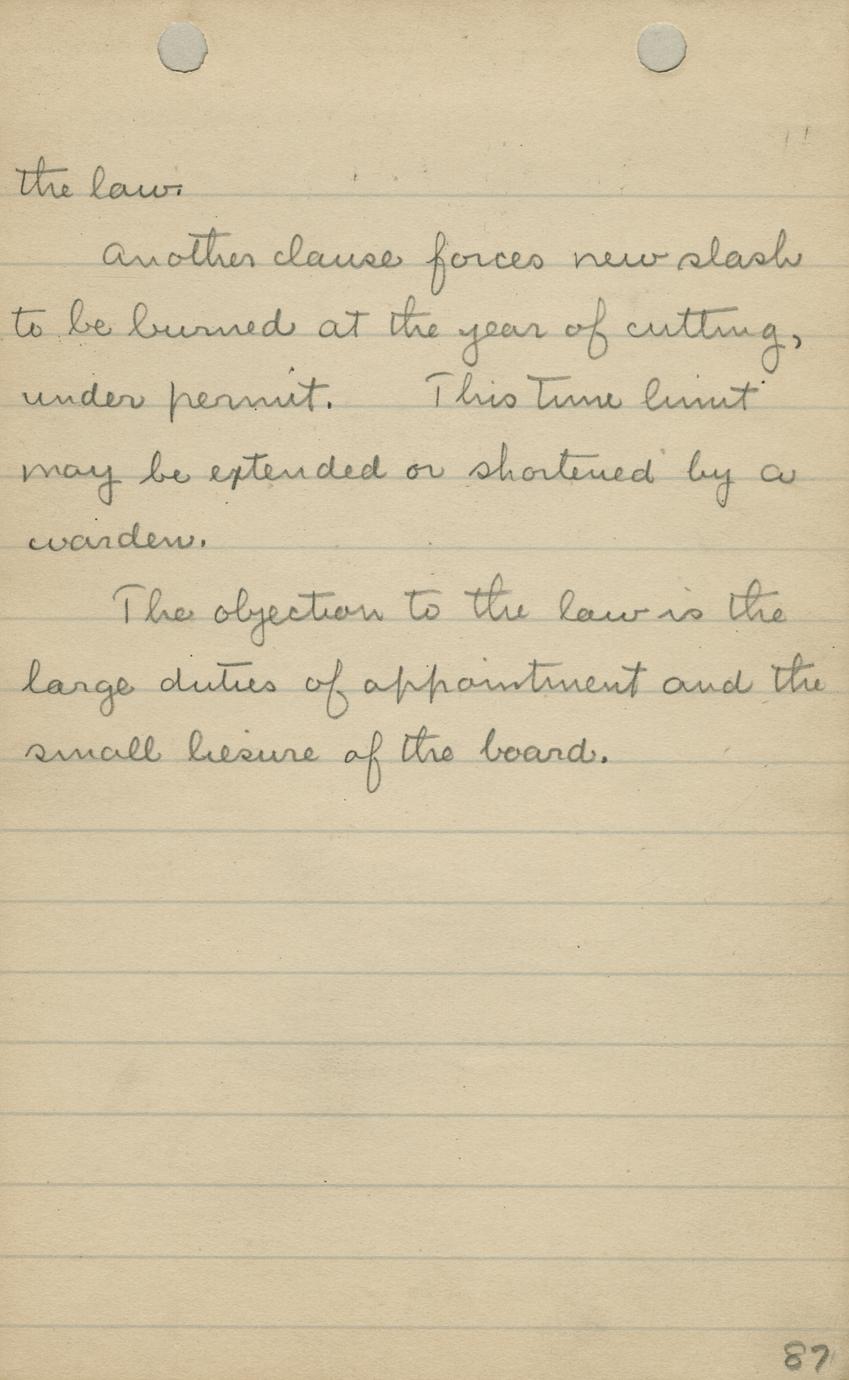 the law.
Another clause forces new slash
to be burned at the year of cutting,
under permit. This time limit
may be extended or shortened by a
warden.
The objection to the law is the
large duties of appointment and the
small liesure of the board.
87